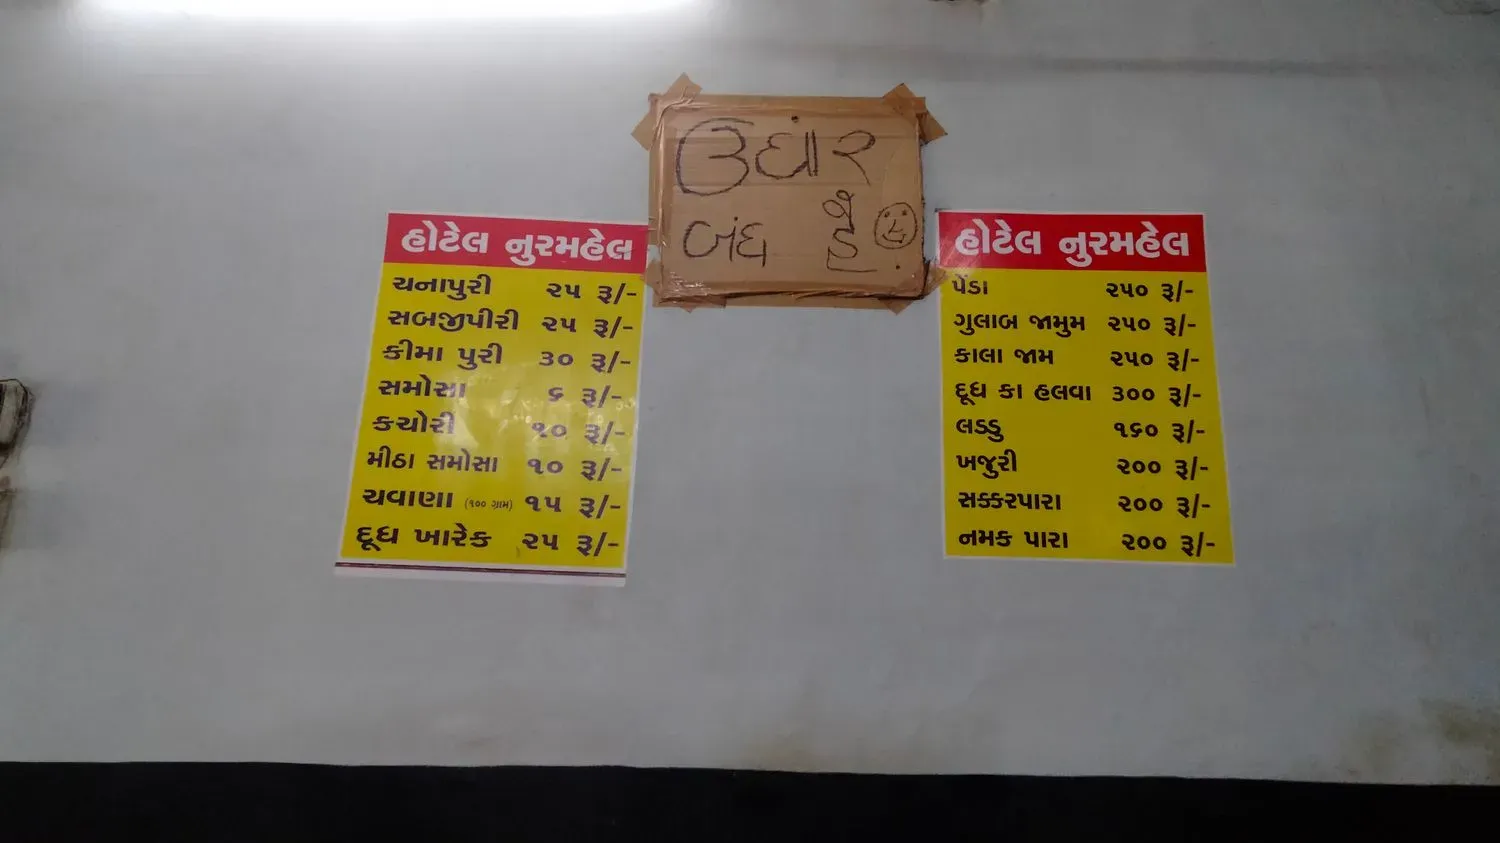 ઉધાર
બંધ હૈ
હોટેલ નુરમહેલ
ચનાપુરી ૨૫ રૂ/-
સબજીપીરી ૨૫ રૂ/-
કીમા પુરી ૩૦ રૂ/-
સમોસા ૬ રૂ/-
કચોરી ૧૦ રૂ/-
મીઠા સમોસા ૧૦ રૂ/-
ચવાણા (૧૦૦ ગ્રામ) ૧૫ રૂ/-
દૂધ ખારેક ૨૫ રૂ/-
હોટેલ નુરમહેલ
પેંડા ૨૫૦ રૂ/-
ગુલાબ જામુમ ૨૫૦ રૂ/-
કાલા જામ ૨૫૦ રૂ/-
દૂધ કા હલવા ૩૦૦ રૂ/-
લડડુ ૧૬૦ રૂ/-
ખજુરી ૨૦૦ રૂ/-
સક્કરપારા ૨૦૦ રૂ/-
નમક પારા ૨૦૦ રૂ/-